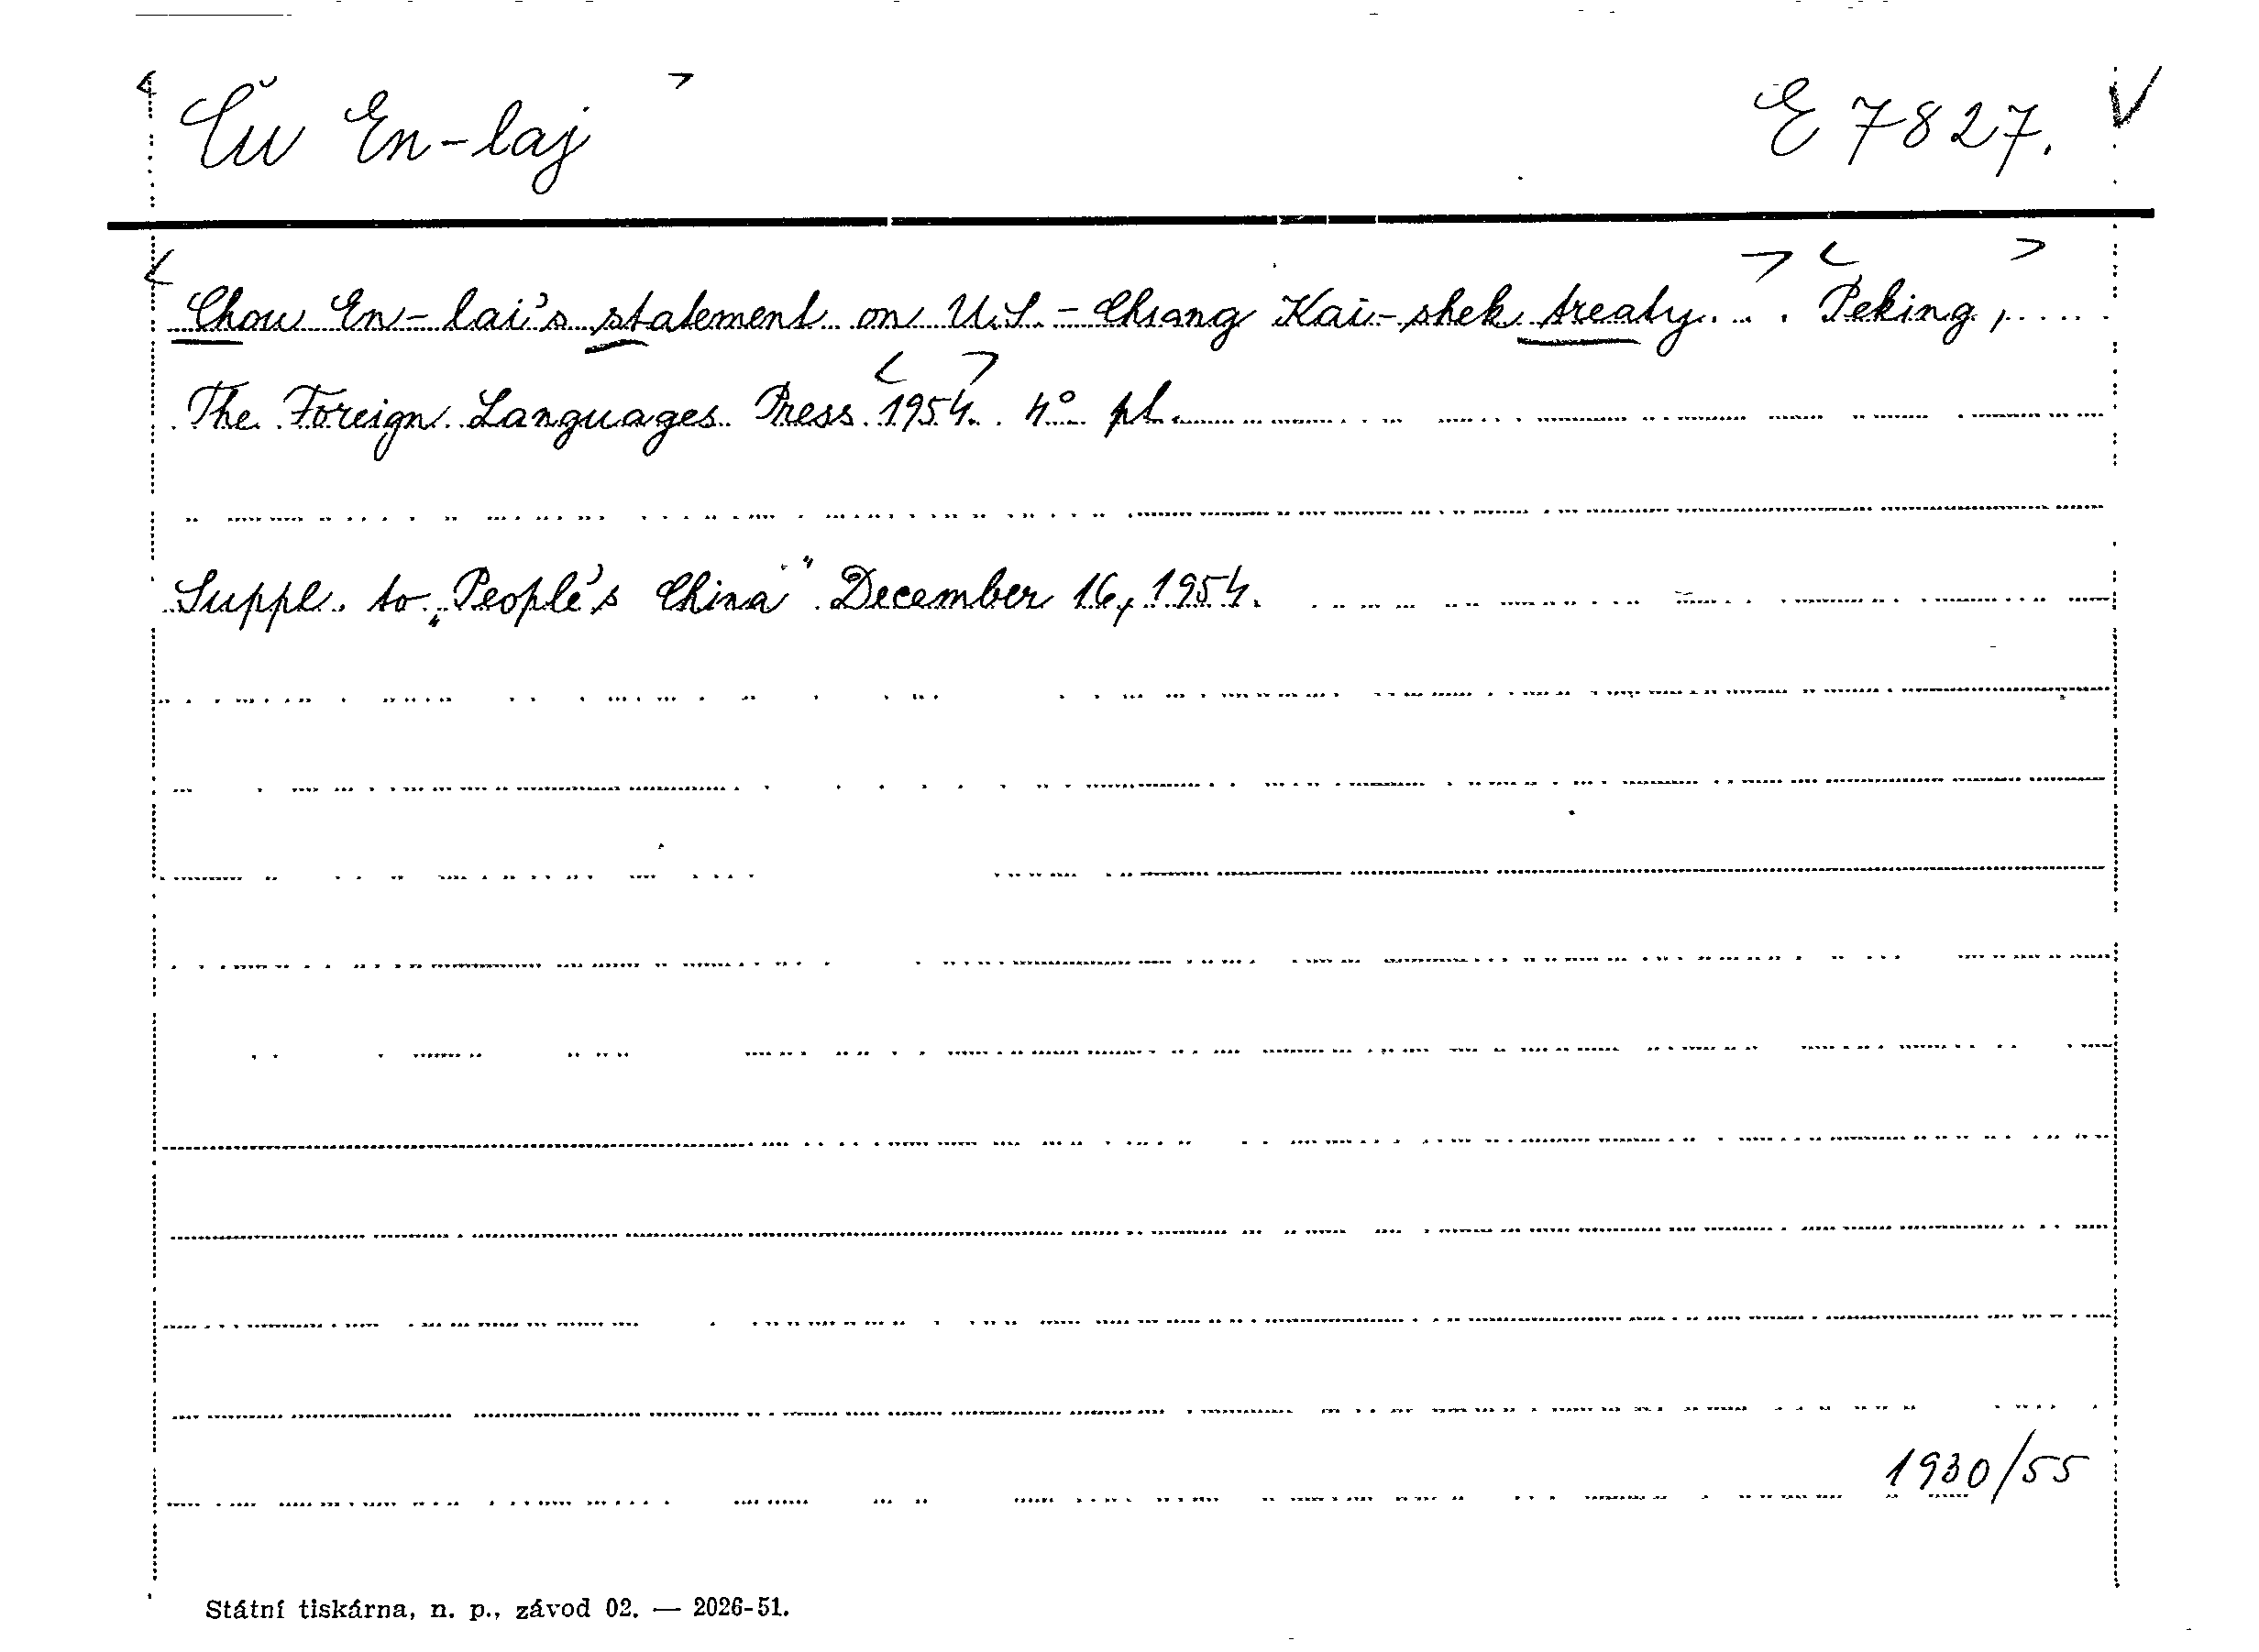 Ču En-laj E 7827. V
Chou En-lai's statement on U.S.-Chiang Kai-shek treaty... Peking,
The Foreign Languages Press 1954. 4° pl.
Suppl. to „People's China" December 16, 1954.
1930/55
Státní tiskárna, n. p., závod 02. — 2026-51.